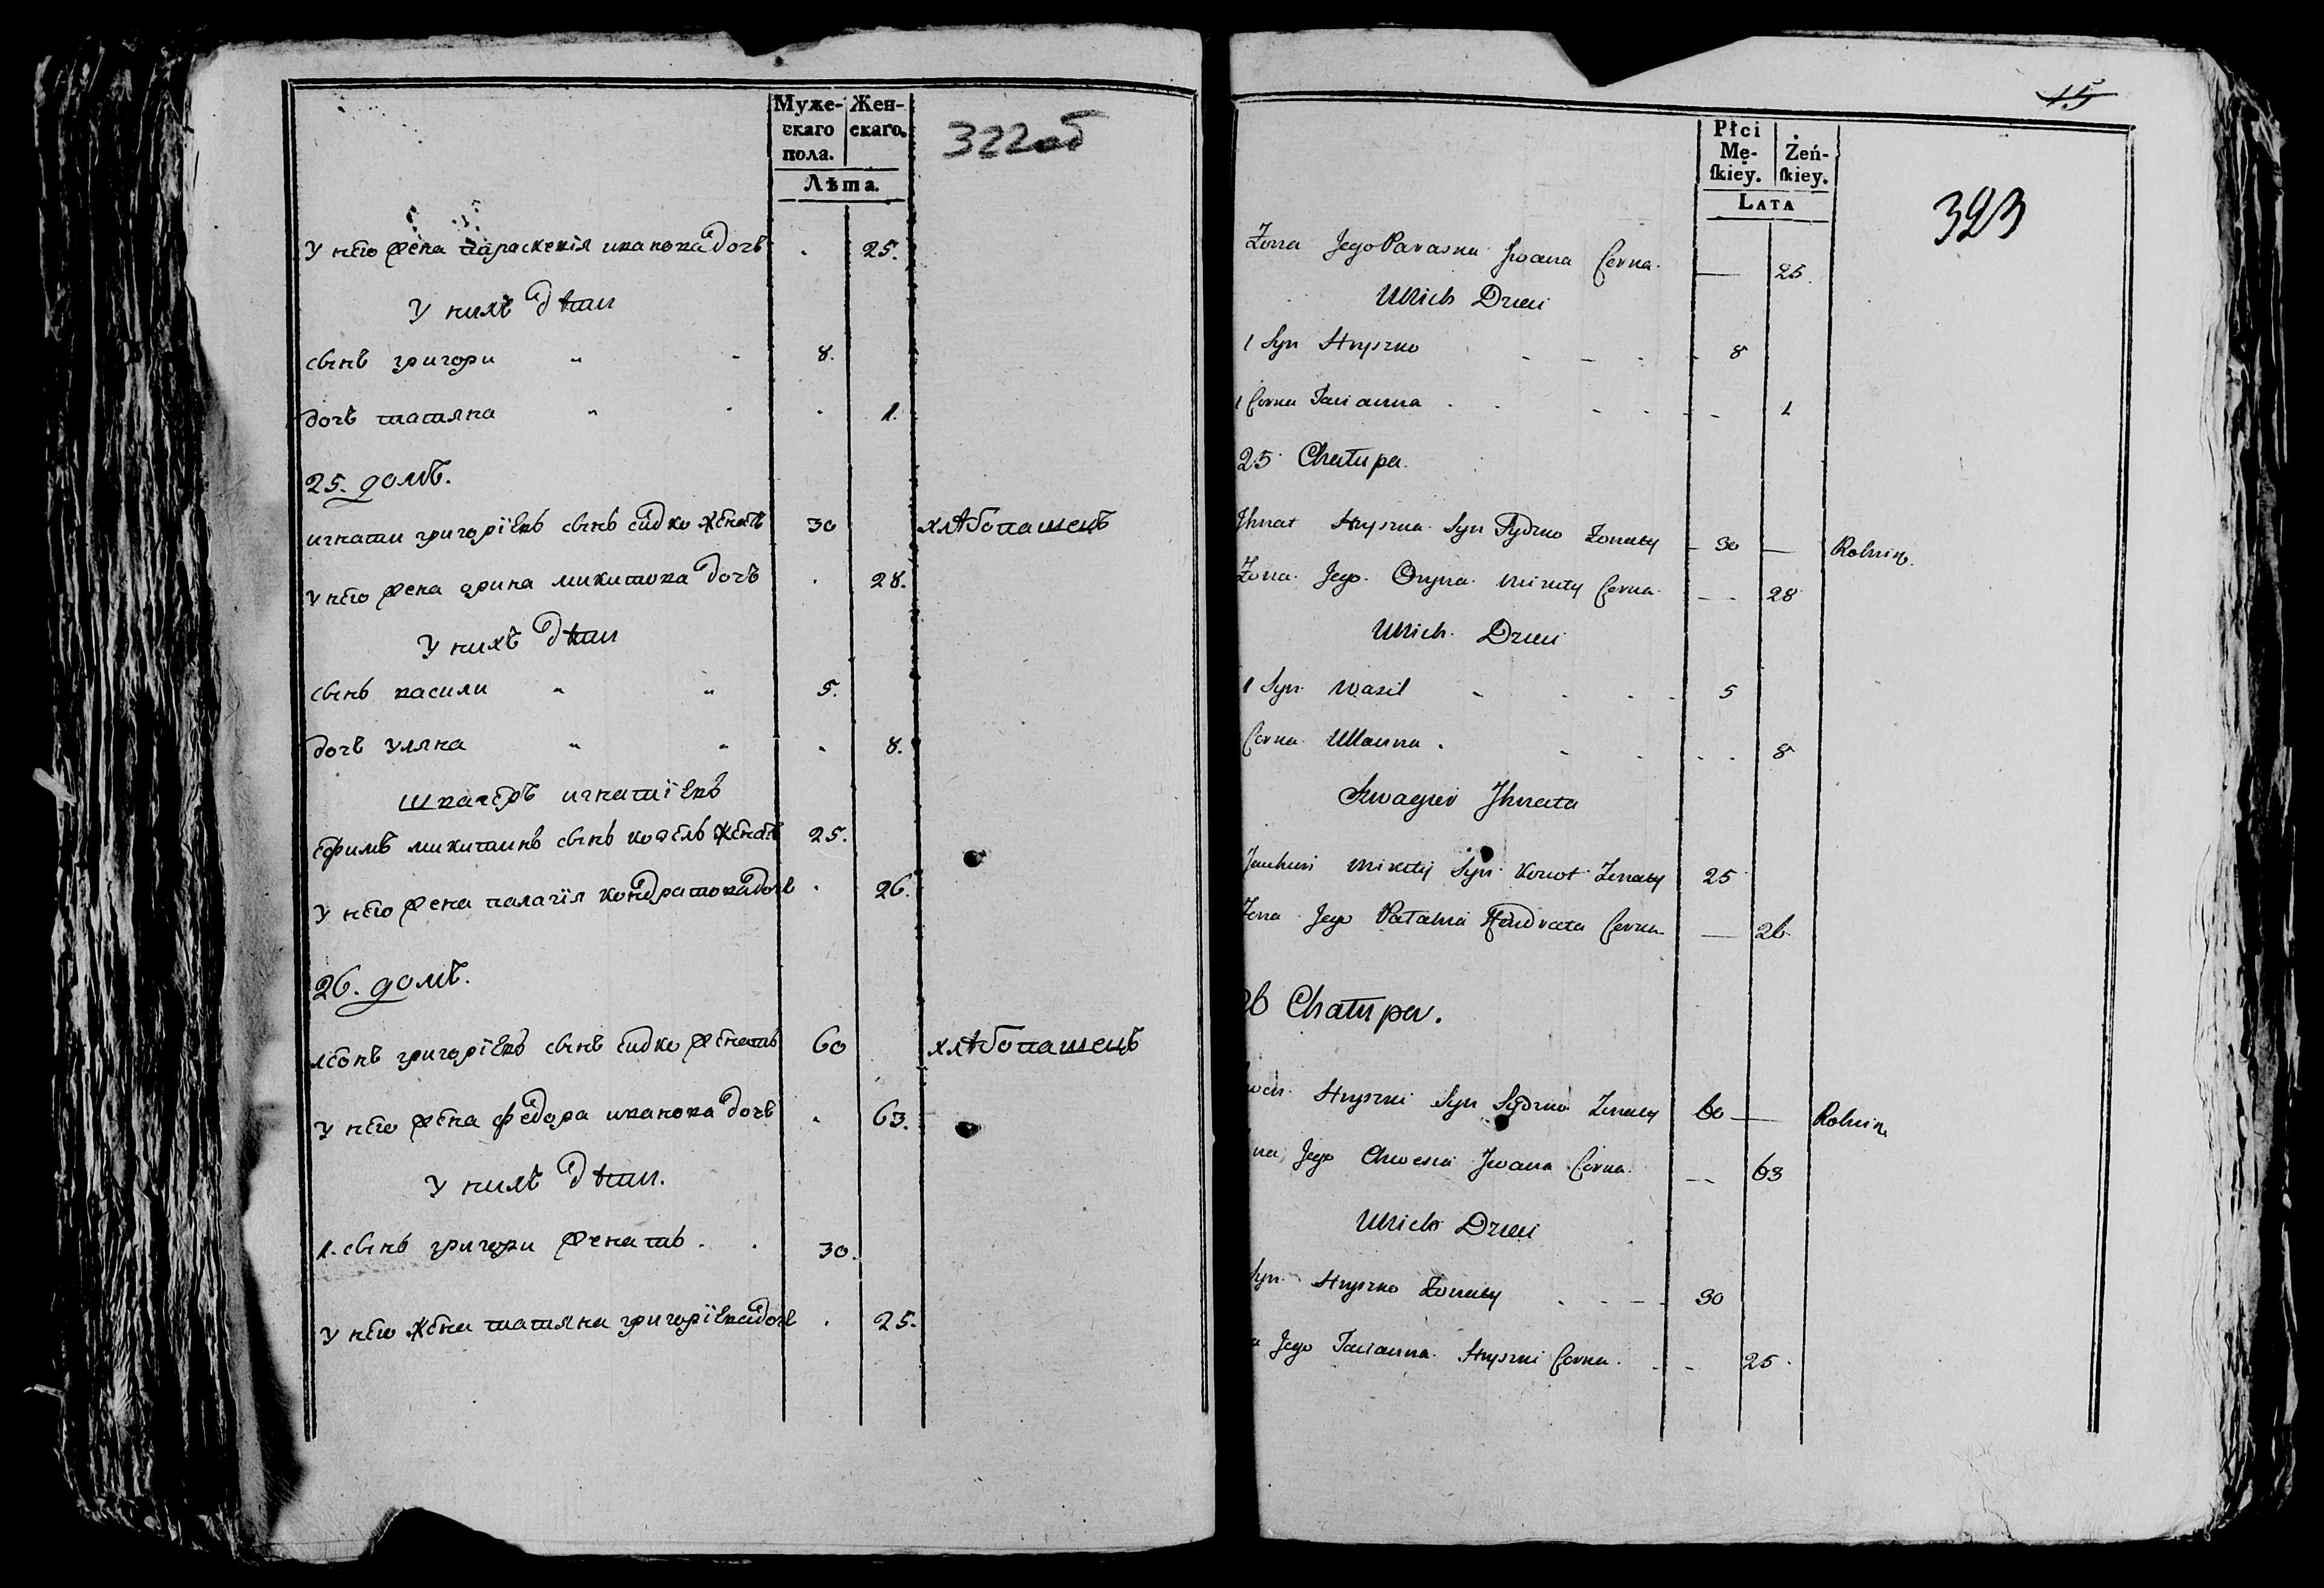 Муже-
скаго
пола.
Жен-
скаго.
Лѣта.
322об
У него жена параскевія иванова дочь . 25.
У нихъ дѣти
сынъ григори " - 8.
дочь татяна " - . 1.
25. домъ.
игнати григоріевъ сынъ сидко женатъ 30 хлѣбопашецъ
У него жена орина микитова дочь . 28.
У нихъ дѣти
сынъ васили " " 5.
дочь уляна " " . 8.
швагеръ игнатіевъ
ефимъ микитинъ сынъ козелъ женатъ 25.
У него жена палагія кондратова дочь . 26.
26. домъ.
леонъ григоріевъ сынъ сидко женатъ 60 хлѣбопашецъ
У него жена федора иванова дочь . 63.
У нихъ дѣти.
1. сынъ григори женатъ . . 30.
У него жена татяна григоріева дочь . 25.
15
Płci
Mę-
ſkiey.
Żeń-
ſkiey.
LATA
323
Zona Jego Paraska Jwana Corka. — 25.
U Nich Dzieci
1 Syn Hryszko - - - 8
1 Corka Tacianna . . - - - - 1
25 Chałupa.
Jhnat Hryszka Syn Sydzko Zonaty - 30 — Rolnik.
Zona Jego Oryna Mikity Corka - - 28
U Nich Dzieci
1 Syn Wasil - - - - 5
Corka Ullanna . - - . . 8
Szwagier Jhnata
Jauchim Mikity Syn Zonaty 25
Zona Jego Pałahia Kondrata Corka — 26
26 Chałupa.
Hryszki Syn Sydzko Zonaty 60 — Rolnik
Jego Chwesia Jwana Corka. -- 63
U Nich Dzieci
Syn Hryszko Zonaty . - - - 30
Jego Tacianna Hryszki Corka. - - 25.